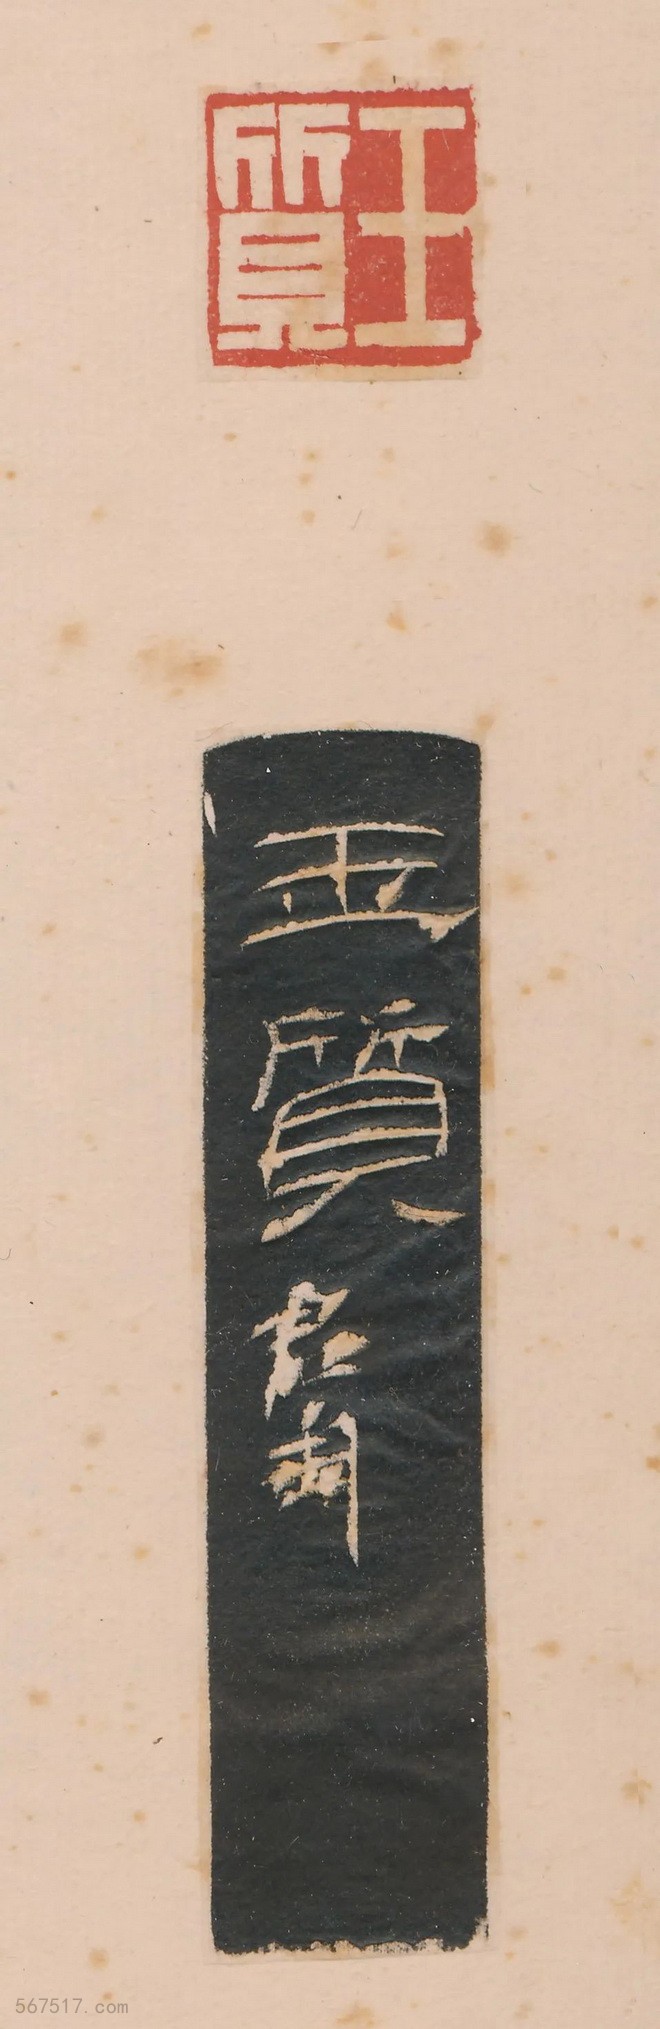 玉質
玉質
君匋
567517.com